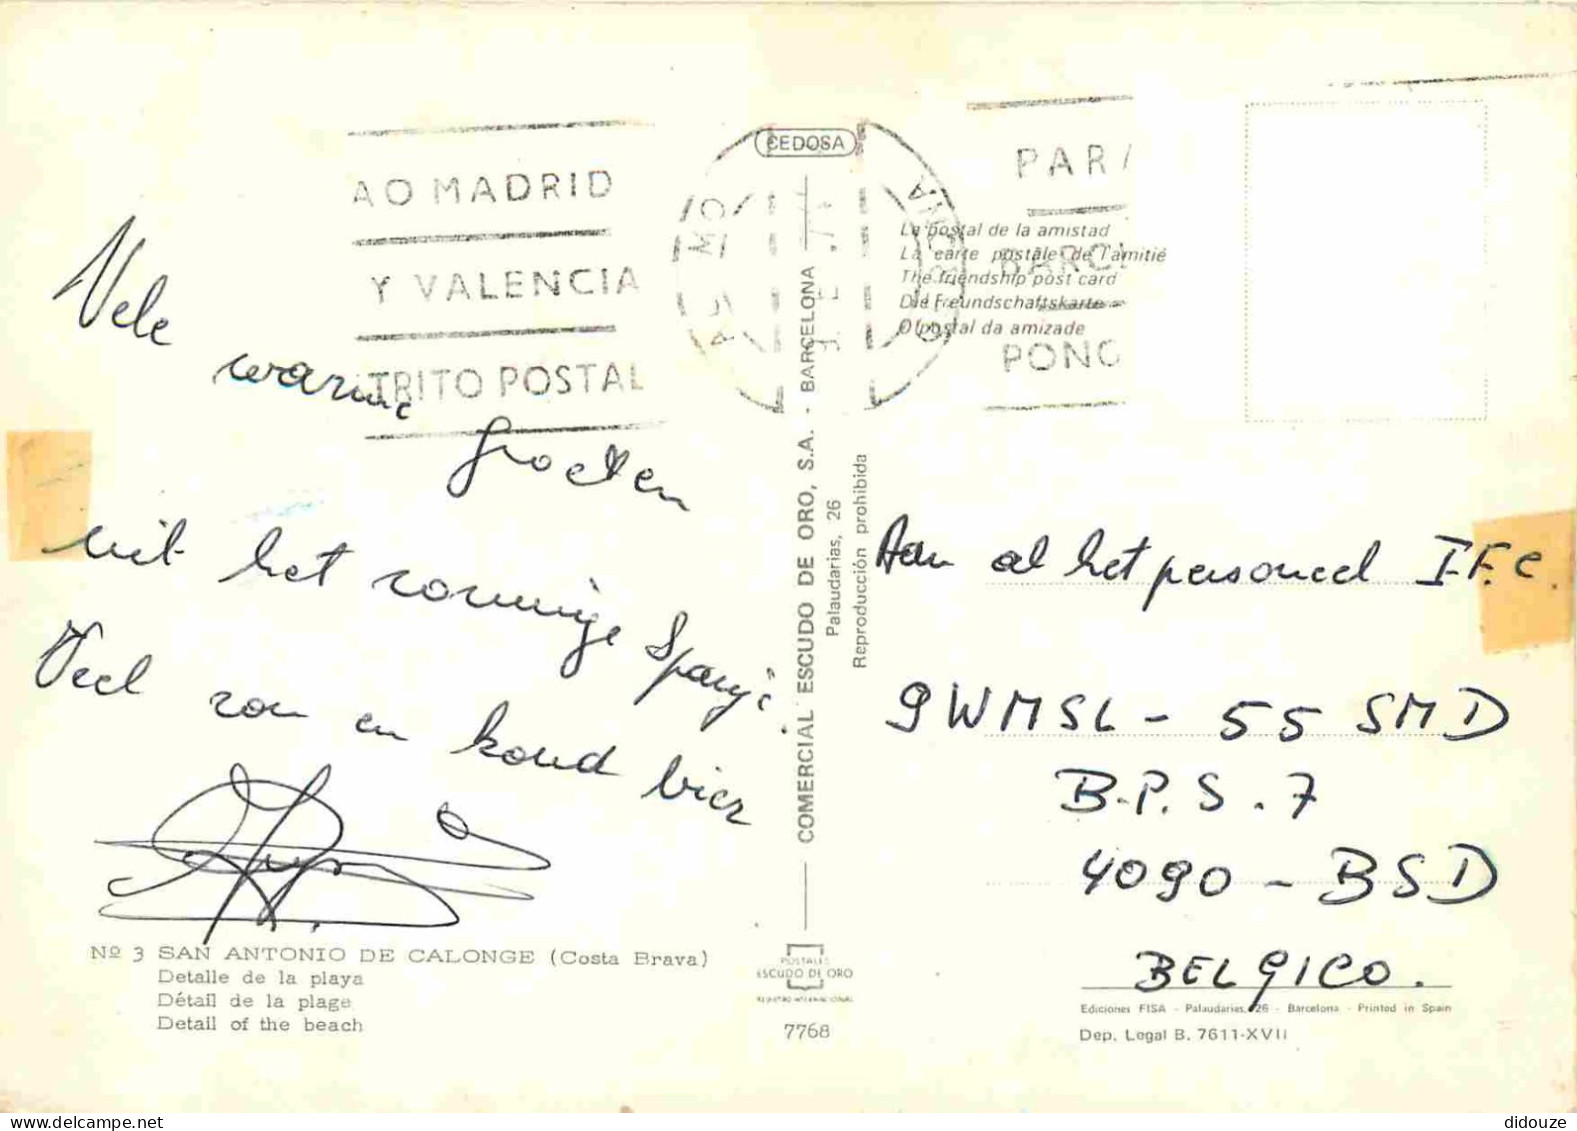 CEDOSA
AO MADRID
Y VALENCIA
TRITO POSTAL
PARA
BARC
PONG
La postal de la amistad
La carte postale de l'amitié
The friendship post card
Die Freundschaftskarte
O postal da amizade
Vele
warme
groeten
uit het zonnige Spanje
Veel zon en koud bier
COMERCIAL ESCUDO DE ORO, S.A. - BARCELONA
Palaudarias, 26
Reproducción prohibida
Aan al het personeel I.F.C.
9WMSL - 55 SMD
B.P.S. 7
4090 - BSD
BELGICO.
Nº 3 SAN ANTONIO DE CALONGE (Costa Brava)
Detalle de la playa
Détail de la plage
Detail of the beach
POSTALES
ESCUDO DE ORO
REGISTRO INTERNACIONAL
7768
Ediciones FISA - Palaudarias, 26 - Barcelona - Printed in Spain
Dep. Legal B. 7611-XVII
didouze